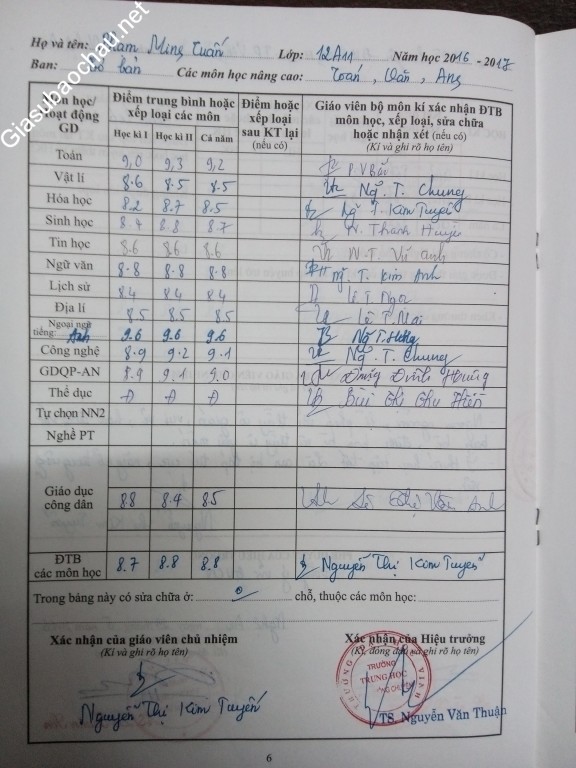 Giasubaochau.net
Họ và tên: Phạm Minh Tuấn Lớp: 12A11 Năm học 2016 - 2017
Ban: Cơ bản Các môn học nâng cao: Toán, Văn, Anh
Môn học/ Hoạt động GD Điểm trung bình hoặc xếp loại các môn Điểm hoặc xếp loại sau KT lại (nếu có) Giáo viên bộ môn kí xác nhận ĐTB môn học, xếp loại, sửa chữa hoặc nhận xét (nếu có) (Kí và ghi rõ họ tên)
Học kì I Học kì II Cả năm
Toán 9,0 9,3 9,2
Vật lí 8.6 8.5 8.5 Ng. T. Chung
Hóa học 8.2 8.7 8.5 Ng T. Kim Tuyến
Sinh học 8.4 8.8 8.7 N. Thanh Huyền
Tin học 8.6 8.6 8.6 N.T. Vũ Anh
Ngữ văn 8.8 8.8 8.8 T. Kim Anh
Lịch sử 8.4 8.4 8.4 Lê T. Nga
Địa lí 8.5 8.5 8.5 Lê T. Mai
Ngoại ngữ tiếng: Anh 9.6 9.6 9.6 Ng T. Hường
Công nghệ 8.9 9.2 9.1 Ng. T. Chung
GDQP-AN 8.9 9.1 9.0 Đình
Thể dục Đ Đ Đ Bùi Thị Thu Hiền
Tự chọn NN2
Nghề PT
Giáo dục công dân 8.8 8.4 8.5 Vân Anh
ĐTB các môn học 8.7 8.8 8.8 Nguyễn Thị Kim Tuyến
Trong bảng này có sửa chữa ở: 0 chỗ, thuộc các môn học:
Xác nhận của giáo viên chủ nhiệm Xác nhận của Hiệu trưởng
(Kí và ghi rõ họ tên) (Kí, đóng dấu và ghi rõ họ tên)
TRƯỜNG
TRUNG HỌC
Nguyễn Thị Kim Tuyến TS. Nguyễn Văn Thuận
6